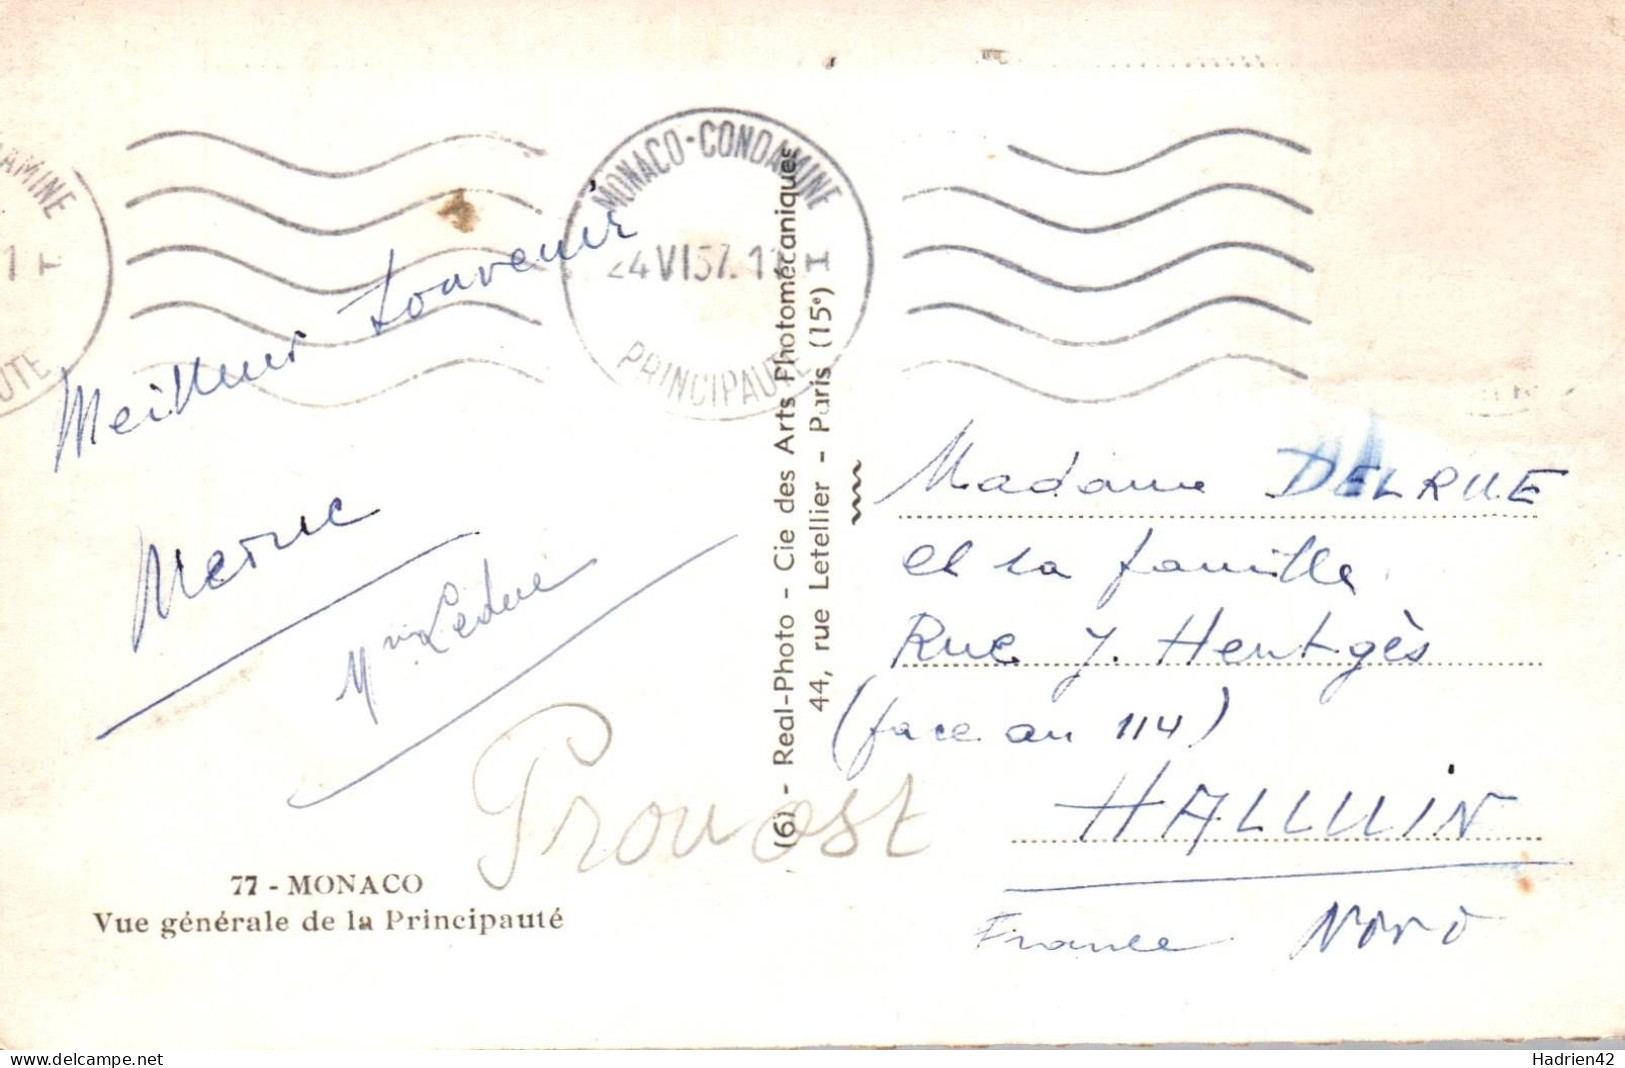 MONACO-CONDAMINE
24 VI 57. 1
I
PRINCIPAUTE
AMINE
1 T
UTE
Meilleur souvenir
Mme Leduc
Provost
77 - MONACO
Vue générale de la Principauté
(6) - Real-Photo - Cie des Arts Photomécaniques
44, rue Letellier - Paris (15e)
Madame DELRUE
et la famille
Rue J. Hentgès
(face au 114)
HALLUIN
France Nord
www.delcampe.net
Hadrien42